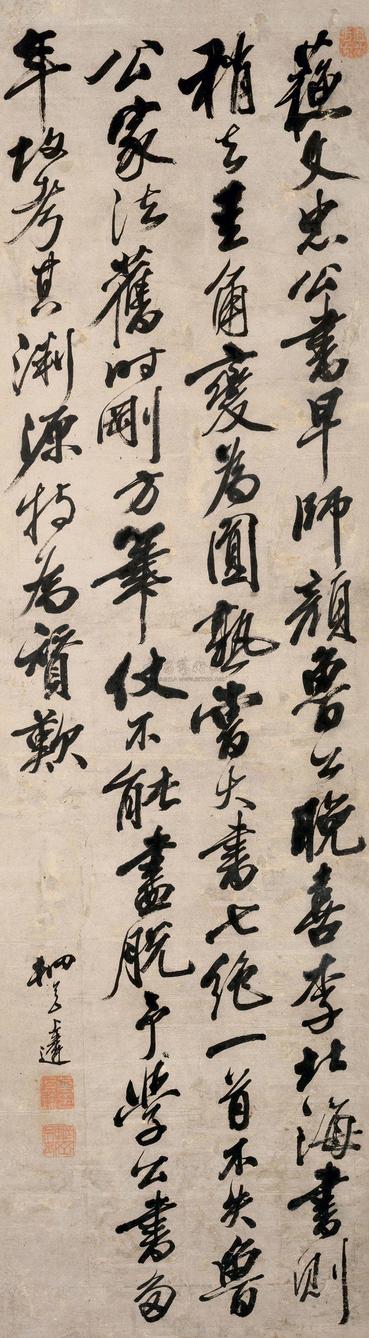 蘓文忠公書早師顔魯公晩喜李北海書則
稍去圭角變為圓熟嘗大書七絶一首不失魯
公家法舊時剛方筆仗不能盡脱予學公書多
年故考其淵源特為賛歎
達